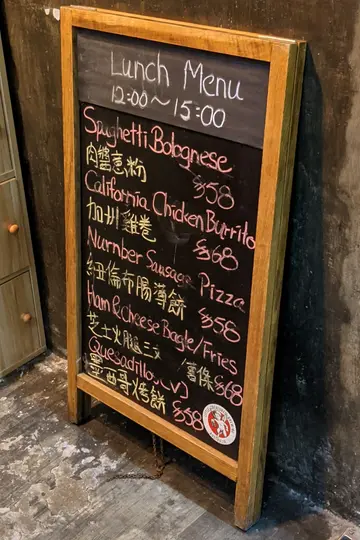 Lunch Menu
12:00~15:00
Spaghetti Bolognese
肉醬意粉 $58
California Chicken Burrito
加州雞卷 $68
Nurnber Sausage Pizza
紐倫布腸薄餅 $58
Ham & Cheese Bagle/Fries
芝士火腿三文/薯條 $68
Quesadilla(v)
墨西哥烤餅 $58